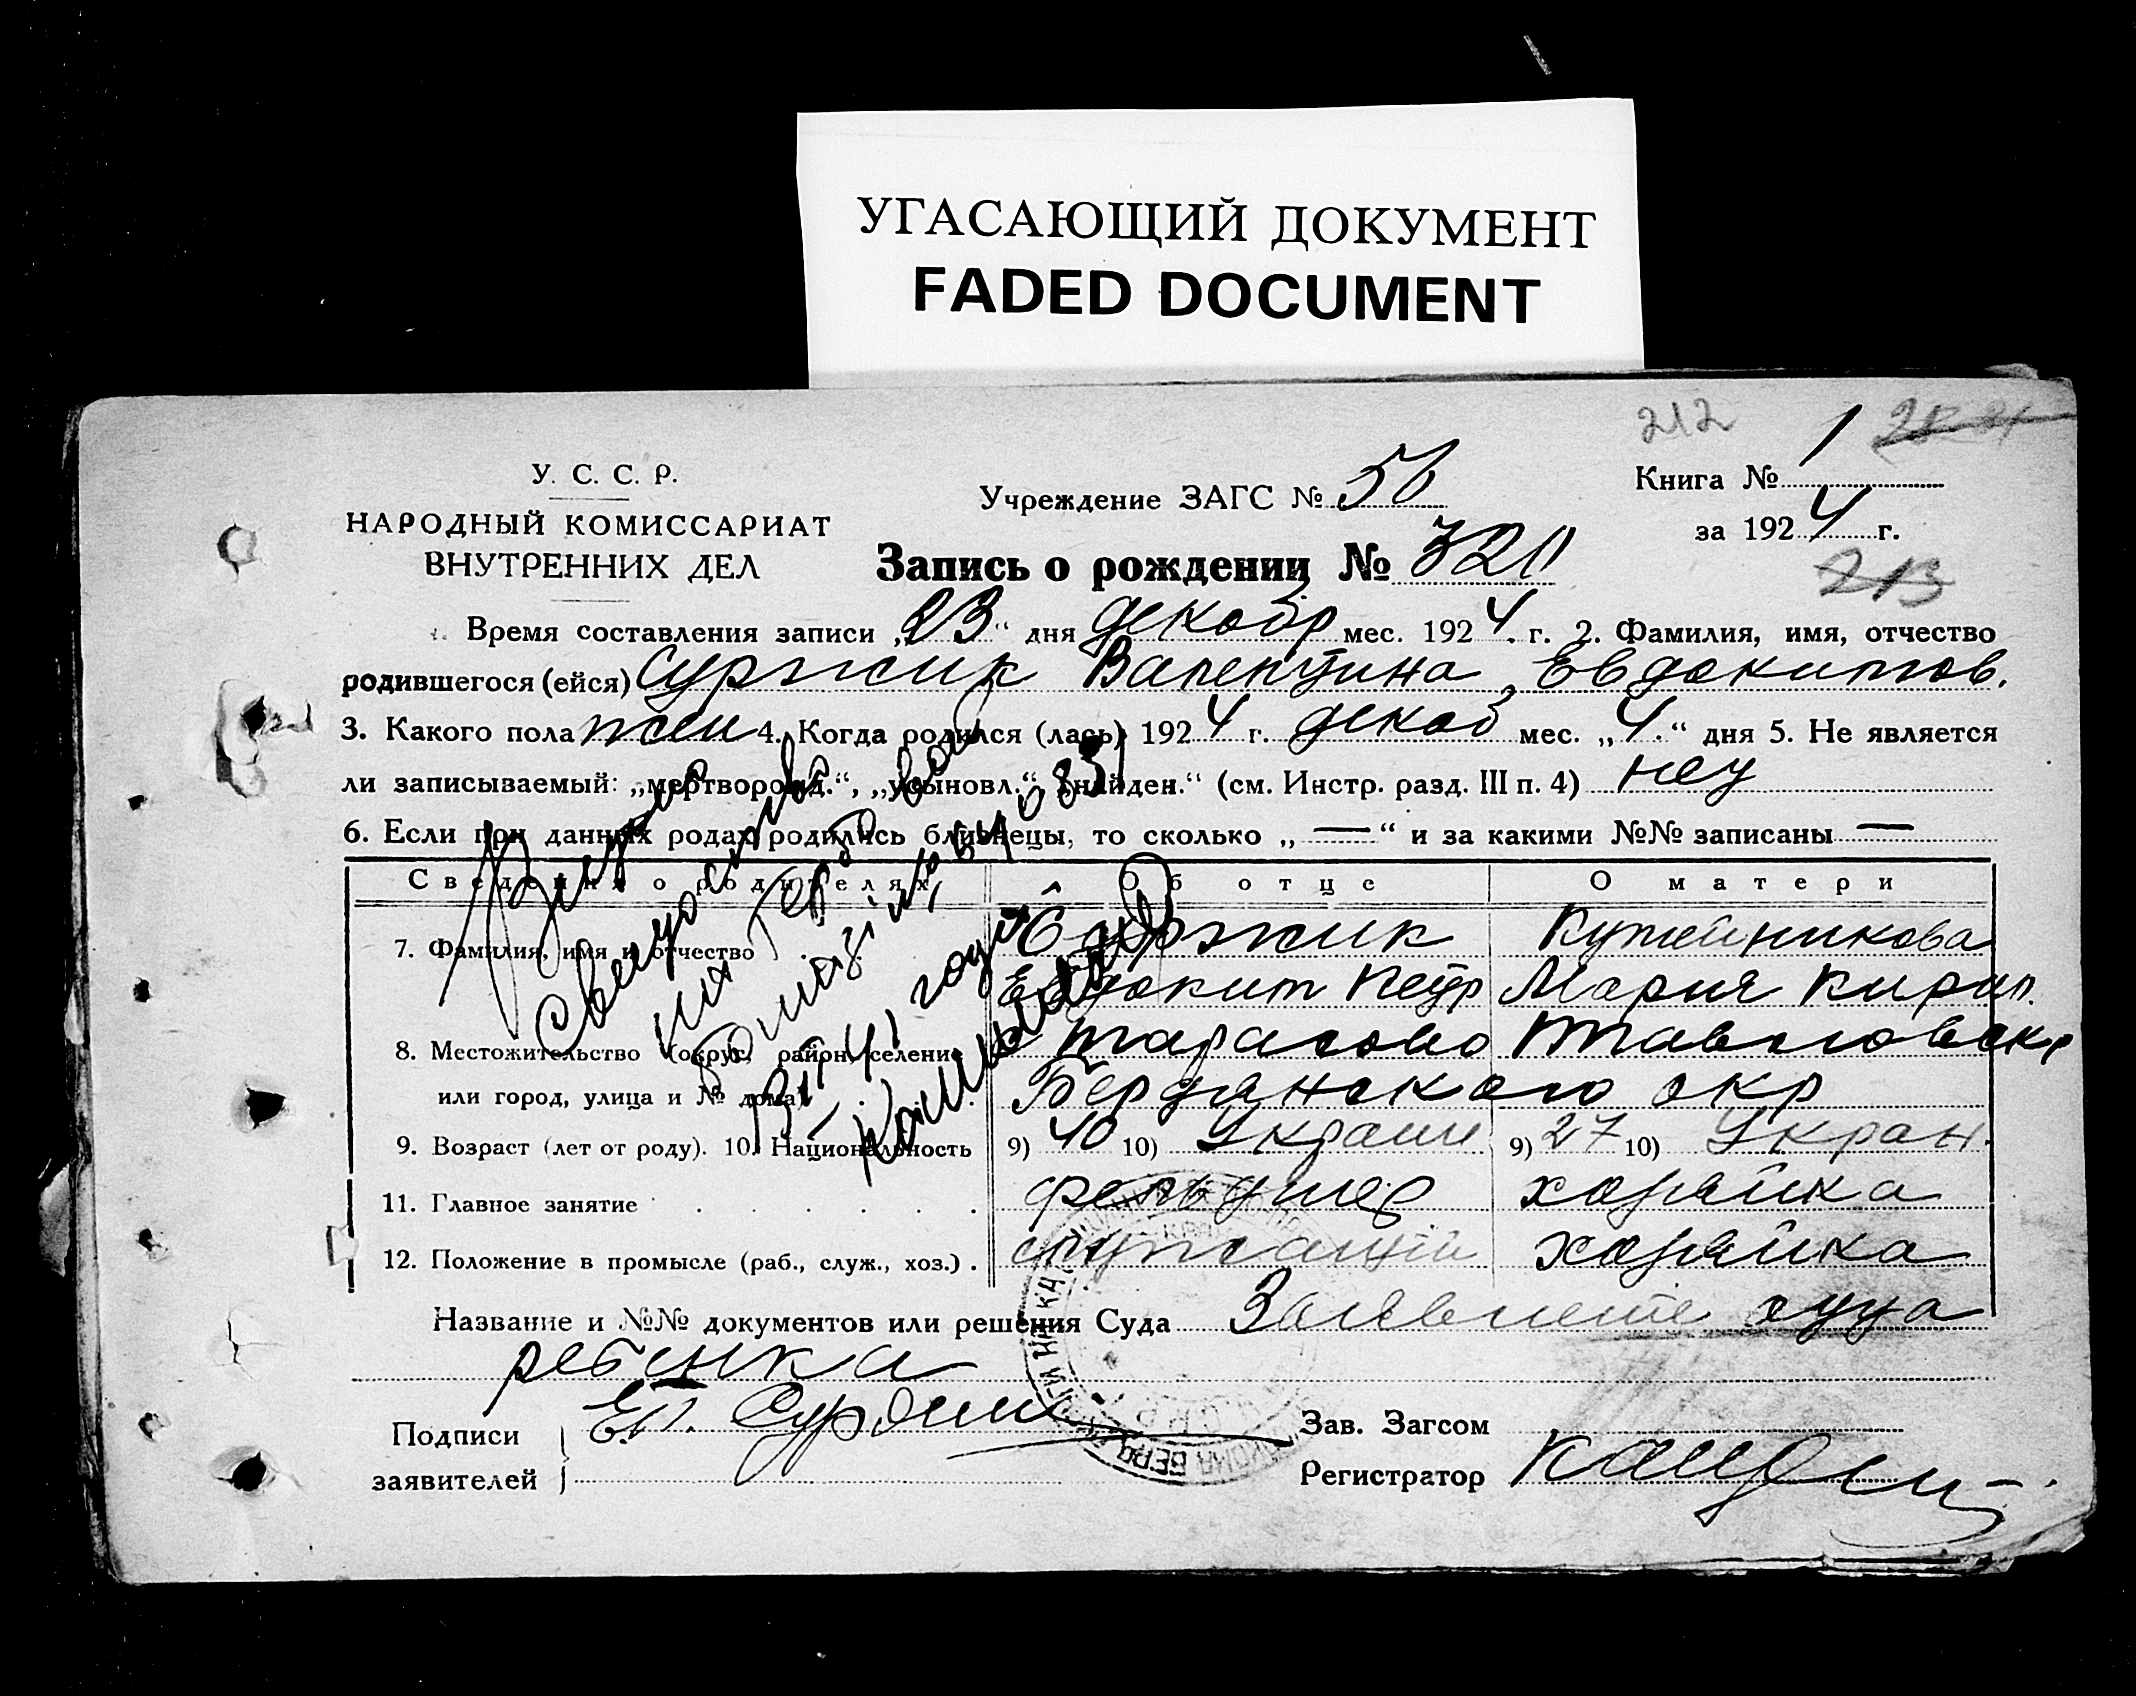 УГАСАЮЩИЙ ДОКУМЕНТ
FADED DOCUMENT
212
У. С. С. Р.
НАРОДНЫЙ КОМИССАРИАТ
ВНУТРЕННИХ ДЕЛ
Учреждение ЗАГС № 56
Книга № 1
за 1924 г.
213
Запись о рождении № 320
Время составления записи „23“ дня декабр мес. 1924. г. 2. Фамилия, имя, отчество
родившегося (ейся) Суржик Валентина, Евдокимов.
3. Какого пола жен 4. Когда родился (лась) 1924 г. декаб мес. „4.“ дня 5. Не является
ли записываемый: „мертворожд.“, „усыновл.“, „найден.“ (см. Инстр. разд. III п. 4) нет
6. Если при данных родах родились близнецы, то сколько „—“ и за какими №№ записаны —
Сведения о родителях Об отце О матери
7. Фамилия, имя и отчество Суржик Кутейникова
Евдоким Петр Мария Кирил.
8. Местожительство (округ, район, селение
или город, улица и № дома) Бердянского окр
9. Возраст (лет от роду). 10. Национальность 9) 40 10) Украин 9) 27 10) Украин.
11. Главное занятие фельдшер хозяйка
12. Положение в промысле (раб., служ., хоз.) служащий хозяйка
Название и №№ документов или решения Суда Заявление отца
ребенка
Подписи
заявителей
Е.П. Суржик
Зав. Загсом
Регистратор